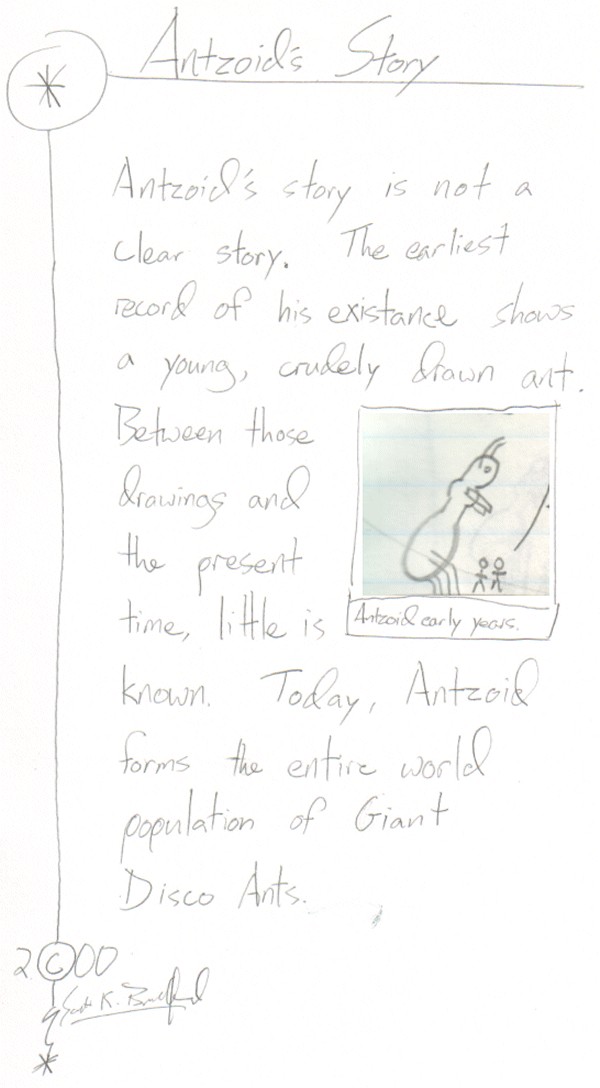 Antzoid's Story
Antzoid's story is not a
clear story. The earliest
record of his existance shows
a young, crudely drawn ant.
Between those
drawings and
the present
time, little is
known. Today, Antzoid
forms the entire world
population of Giant
Disco Ants.
Antzoid early years.
2©00
Scott K.